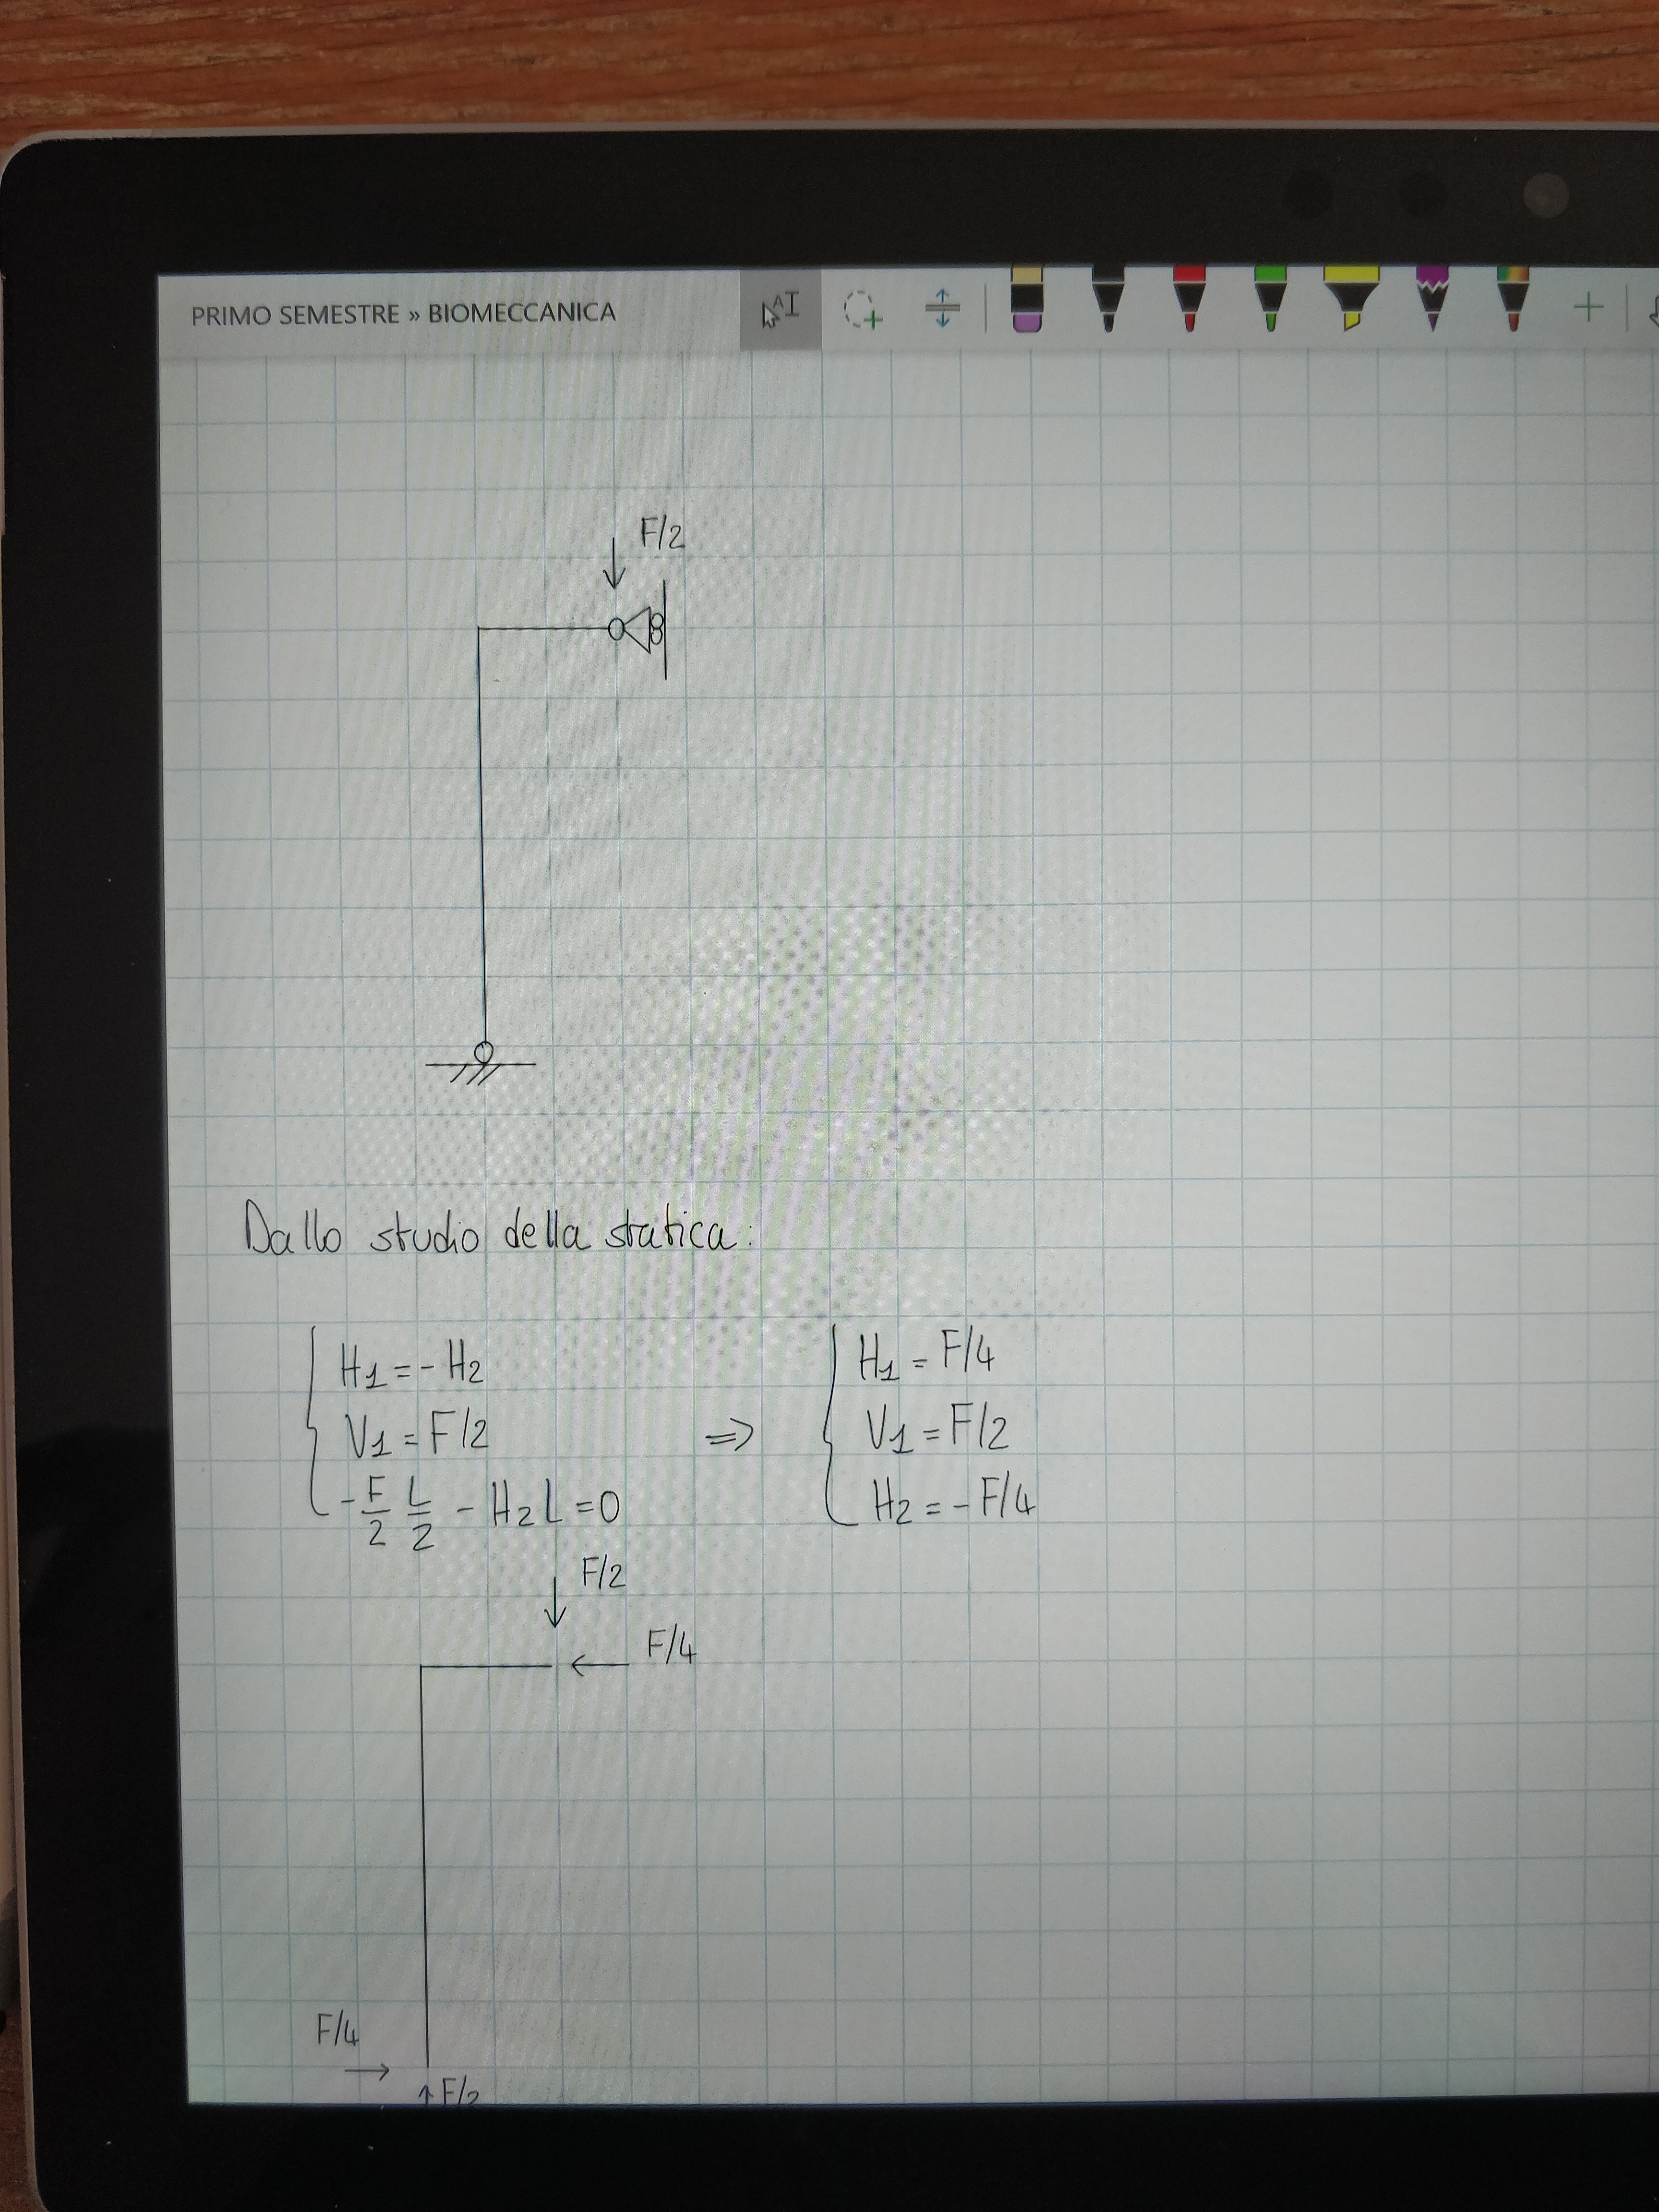 PRIMO SEMESTRE » BIOMECCANICA
F/2
Dallo studio della statica:
H1 = - H2
V1 = F/2
-F/2 L/2 - H2 L = 0
⇒
H1 = F/4
V1 = F/2
H2 = - F/4
F/2
F/4
F/4
F/2